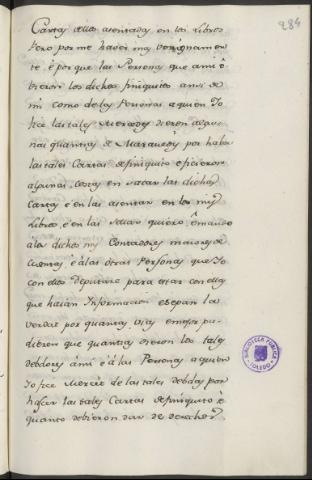 284
Cartas dellas asentadas en los Libros
Pero porque haver mas benignamen
te, é porque las Personas que ami ò
bieron los dichos finiquitos ansi de
mi como de las Personas aquien Yo
fice las tales Mercedes dieron algu
nas quantias de Maravedis por haber
las tales Cartas de finiquito e ficieron
algunas Costas en sacar las dichas
Cartas é en las asentar en los mis
Libros é en las quiero é mando
á los dichos mis Contadores maiores de
Cuentas, é á las otras Personas que Yo
con ellos Deputare para estar con ellos
que hacian Informacion é sepan la
verdat por quantas vias mejor pu-
dieren que quantias dieron los tales
debdores á mi é á las Personas aquien
Yo fice Merced de las tales debdas por
hacer las tales Cartas de finiquito é
quanto debieron dar de derechos
BIBLIOTECA PUBLICA
TOLEDO